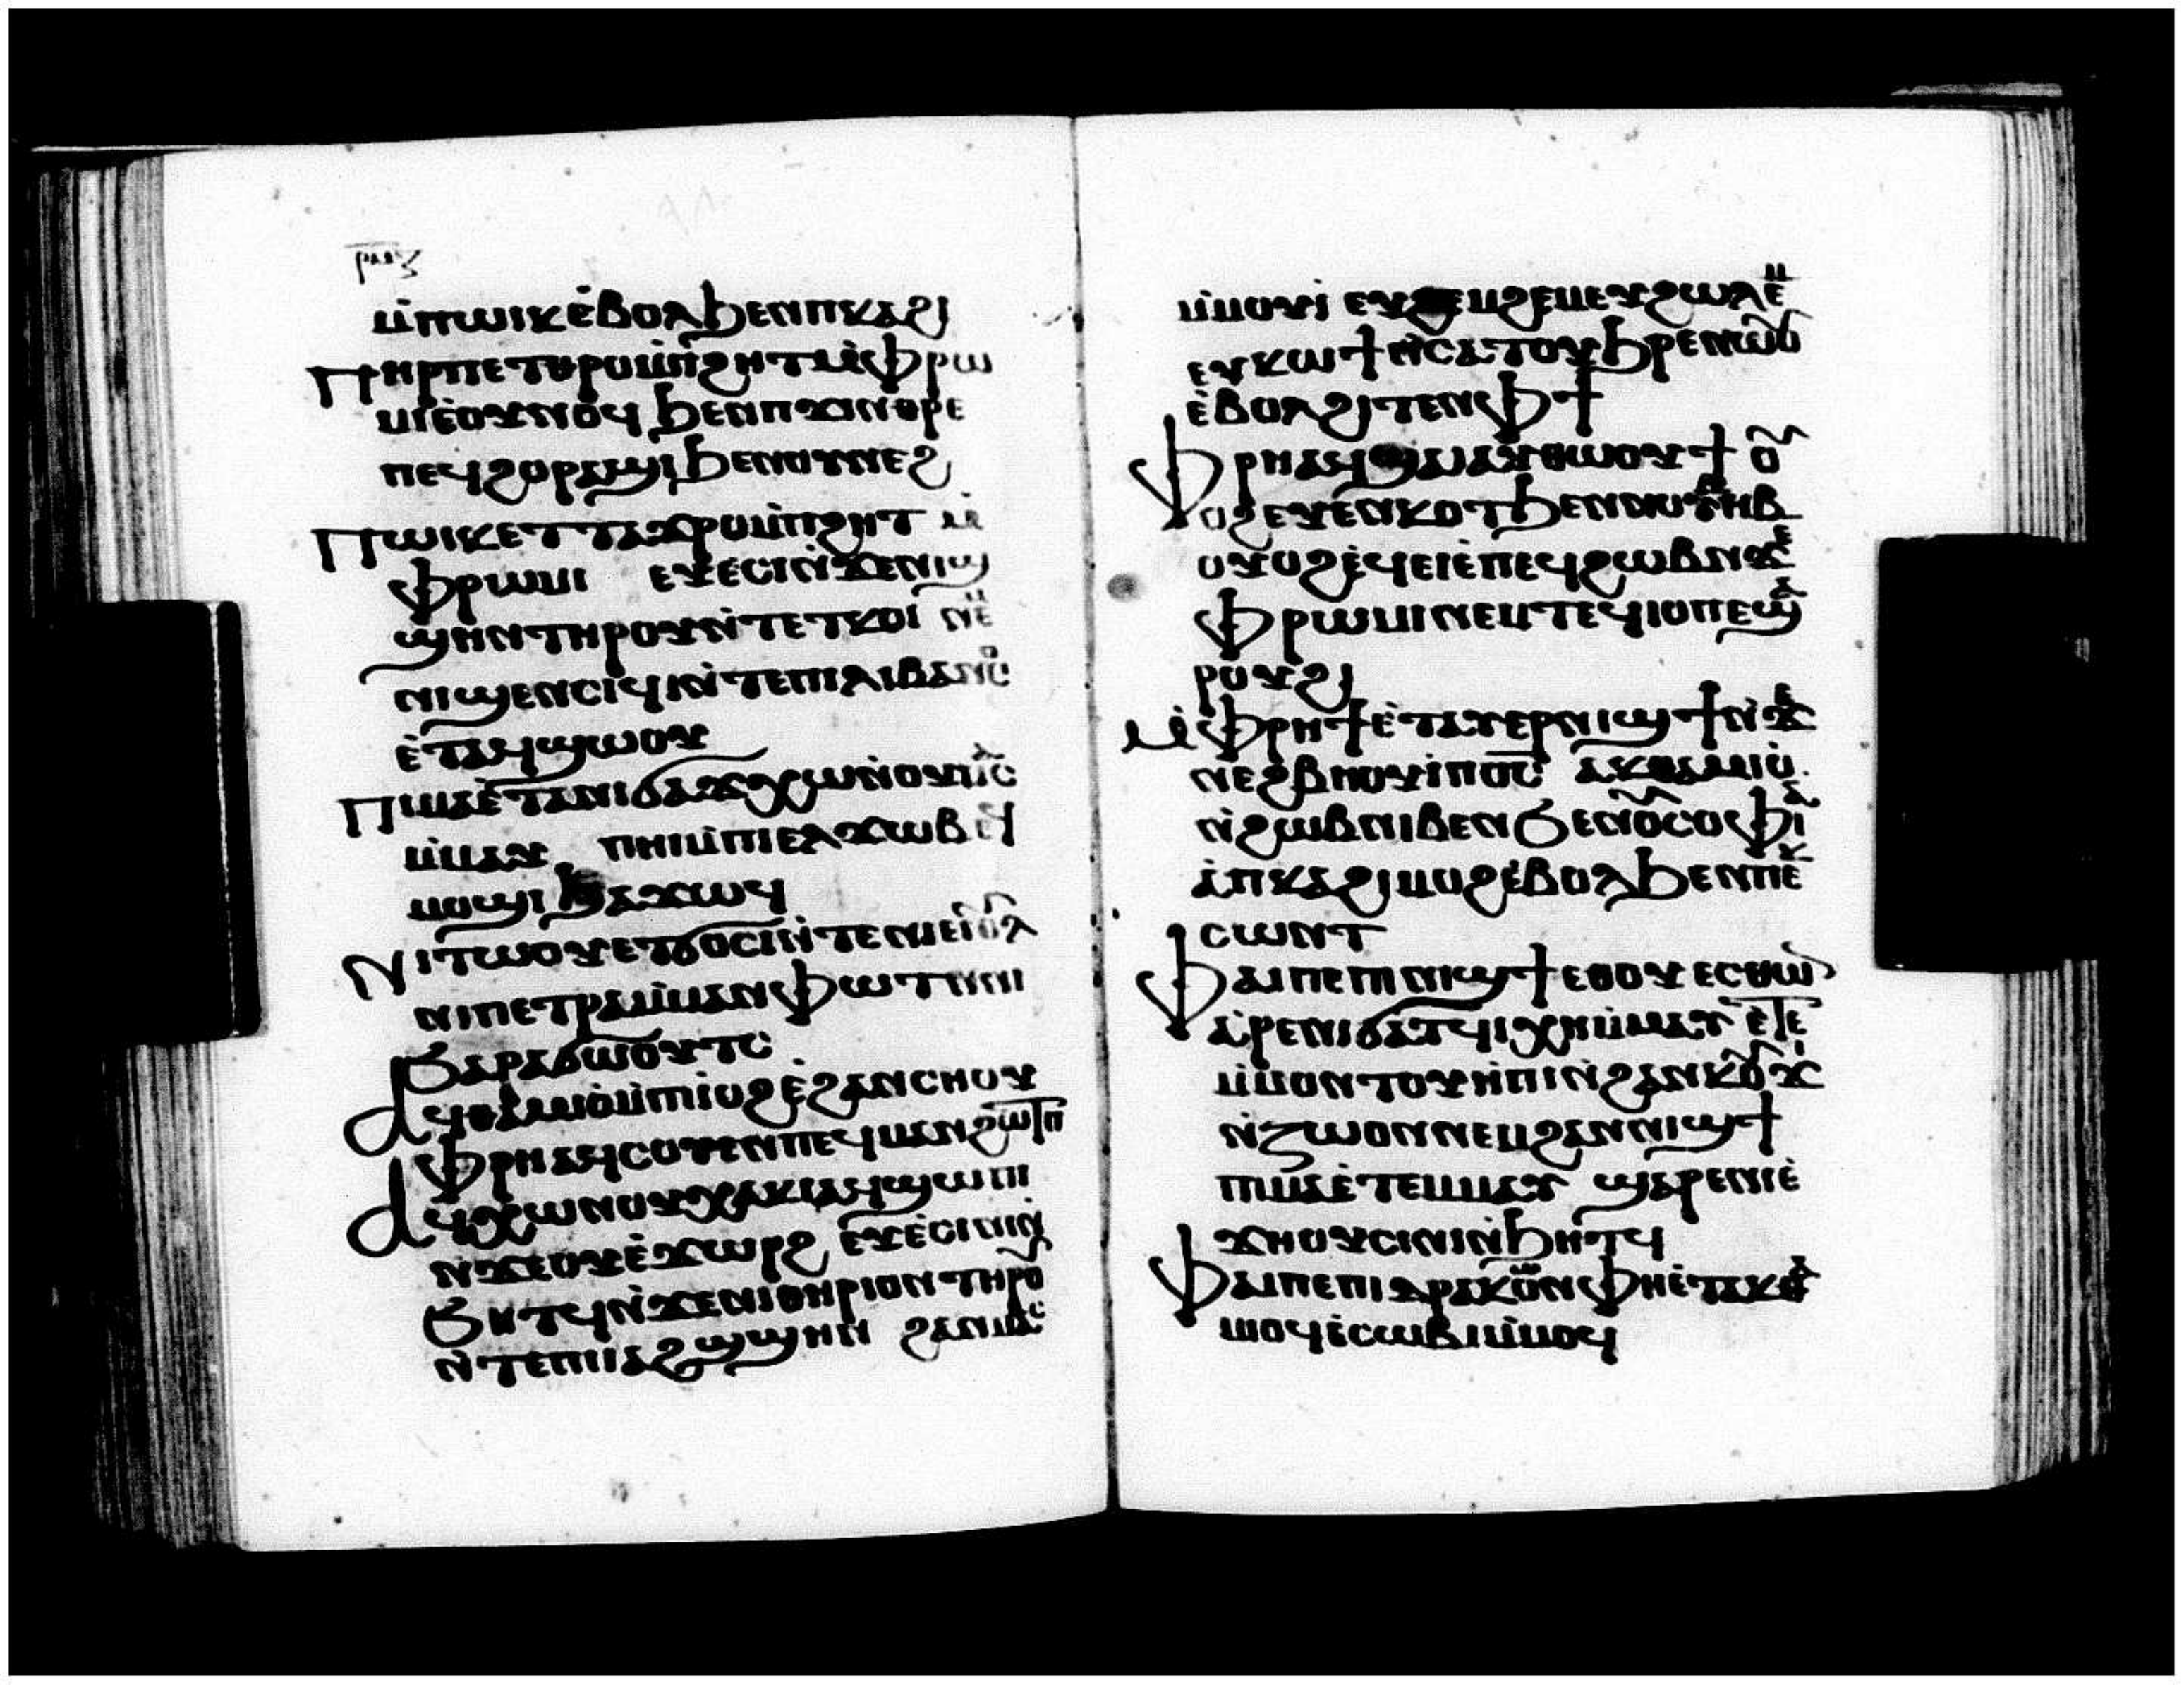 ⲣⲙⲍ
ⲙ̀ⲡⲱⲓⲕ ⲉ̀ⲃⲟⲗ ϧⲉⲛ ⲡⲕⲁϩⲓ
Ⲡⲏⲣⲡ ⲉⲧⲑⲣⲟ ⲙ̀ⲡϩⲏⲧ ⲙ̀ⲫⲣⲱ
ⲙⲓ ⲉ̀ⲟⲩⲛⲟϥ ϧⲉⲛ ⲡϫⲓⲛⲑⲣⲉ
ⲡⲉϥϩⲟ ⲣⲁϣⲓ ϧⲉⲛ ⲟⲩⲛⲉϩ
Ⲡⲱⲓⲕ ⲉⲧⲧⲁϫⲣⲟ ⲙ̀ⲡϩⲏⲧ ⲙ̀
ⲫⲣⲱⲙⲓ ⲉⲩⲉ̀ⲥⲓ ⲛ̀ϫⲉ ⲛⲓϣ
ϣⲏⲛ ⲧⲏⲣⲟⲩ ⲛ̀ⲧⲉ ⲧⲕⲟⲓ ⲛⲉⲙ
ⲛⲓϣⲉⲛⲥⲓϥⲓ ⲛ̀ⲧⲉ ⲡⲓⲗⲓⲃⲁⲛⲟⲥ
ⲉ̀ⲧⲁϥϣⲱⲟⲩ
Ⲡⲓⲙⲁ ⲉ̀ⲧⲁ ⲛⲓϭⲁϫ ⲭⲱ ⲛ̀ⲟⲩⲙⲁⲥ
ⲙ̀ⲙⲁⲩ ⲡⲏⲓ ⲙ̀ⲡⲓⲉⲗϫⲱⲃ ⲉϥ
ⲙⲟϣⲓ ϧⲁϫⲱϥ
Ⲛⲓⲧⲱⲟⲩ ⲉⲧϭⲟⲥⲓ ⲛ̀ⲧⲉ ⲛⲓⲉⲓⲟⲩⲗ
ⲛⲓⲡⲉⲧⲣⲁ ⲙ̀ⲙⲁⲛⲫⲱⲧ ⲛⲛⲓ
ⲥⲁⲣⲁϭⲱⲟⲩⲧⲥ
Ⲁϥⲑⲁⲙⲓⲟ̀ ⲙ̀ⲡⲓⲓⲟϩ ⲉ̀ϩⲁⲛⲥⲏⲟⲩ
ⲫⲣⲏ ⲁϥⲥⲟⲩⲉⲛ ⲡⲉϥⲙⲁⲛϩⲱⲧⲡ
Ⲁϥⲭⲱ ⲛⲟⲩⲭⲁⲕⲓ ⲁϥϣⲱⲡⲓ
ⲛ̀ϫⲉ ⲟⲩⲉ̀ϫⲱⲣϩ ⲉⲩⲉ̀ⲥⲓⲛⲓ ⲛ̀
ϧⲏⲧϥ ⲛ̀ϫⲉ ⲛⲓⲑⲏⲣⲓⲟⲛ ⲧⲏⲣⲟⲩ
ⲛ̀ⲧⲉ ⲡⲓⲓⲁϩϣϣⲏⲛ ϩⲁⲛⲙⲁⲥ
ⲙ̀ⲙⲟⲩⲓ̀ ⲉⲩϩⲉⲙϩⲉⲙ ⲉⲩϩⲱⲗⲉⲙ
ⲉⲩⲕⲱϯ ⲛ̀ⲥⲁ ⲧⲟⲩϧⲣⲉ ⲛⲱⲟⲩ
ⲉ̀ⲃⲟⲗ ϩⲓⲧⲉⲛ ⲫϯ
Ⲫⲣⲏ ⲁϥϣⲁⲓ ⲁⲩⲑⲱⲟⲩϯ ⲟⲩ
ⲟϩ ⲉⲩⲉ̀ⲛⲕⲟⲧ ϧⲉⲛ ⲛⲟⲩⲙⲏⲃ
ⲟⲩⲟϩ ⲉ̀ϥⲉⲓ̀ ⲉ̀ⲡⲉϥϩⲱⲃ ⲛϫⲉ
ⲫⲣⲱⲙⲓ ⲛⲉⲙ ⲧⲉϥⲓⲟⲡⲉ ϣⲁ
ⲣⲟⲩϩⲓ
Ⲙ̀ⲫⲣⲏϯ ⲉ̀ⲧⲁⲩⲉⲣⲛⲓϣϯ ⲛ̀ϫⲉ
ⲛⲉϩⲃⲏⲟⲩⲓ̀ ⲡⲟ̅ⲥ̅ ⲁⲕⲑⲁⲙⲓⲟ̀
ⲛ̀ϩⲱⲃ ⲛⲓⲃⲉⲛ ϧⲉⲛ ⲟⲩⲥⲟⲫⲓⲁ
ⲁ̀ ⲡⲕⲁϩⲓ ⲙⲟϩ ⲉ̀ⲃⲟⲗ ϧⲉⲛ ⲡⲉⲕ
ⲥⲱⲛⲧ
Ⲫⲁⲓ ⲡⲉ ⲡⲓⲛⲓϣϯ ⲉⲑⲟⲩⲉⲥⲑⲱⲛ
ⲁ̀ⲣⲉ ⲛⲓϭⲁⲧϥⲓ ⲭⲏ ⲙ̀ⲙⲁⲩ ⲉ̀ⲧⲉ
ⲙ̀ⲙⲟⲛ ⲧⲟⲩⲏ̀ⲡⲓ ⲛ̀ϩⲁⲛⲕⲟⲩϫⲓ
ⲛ̀ⲍⲱⲟⲛ ⲛⲉⲙ ϩⲁⲛⲛⲓϣϯ
ⲡⲓⲙⲁ ⲉ̀ⲧⲉⲙⲙⲁⲩ ϣⲁⲣⲉ ⲛⲓⲉ̀
ϫⲏⲟⲩ ⲥⲓⲛⲓ ⲛ̀ϧⲏⲧϥ
Ⲫⲁⲓ ⲡⲉ ⲡⲓⲇⲣⲁⲕⲱⲛ ⲫⲏ ⲉ̀ⲧⲁⲕⲑⲁ
ⲙⲟϥ ⲉ̀ⲥⲱⲃⲓ ⲙ̀ⲙⲟϥ